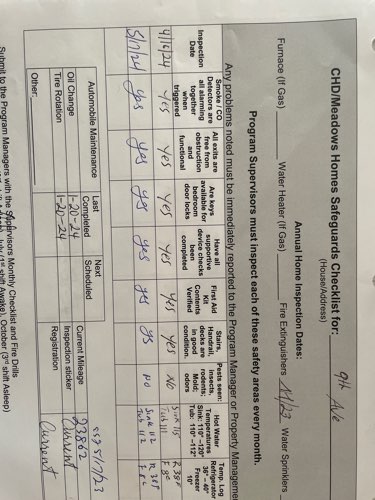 CHD/Meadows Homes Safeguards Checklist for: 9th Ave
(House/Address)
Annual Home Inspection Dates:
Furnace (If Gas) Water Heater (If Gas) Fire Extinguishers 11/22 Water Sprinklers
Program Supervisors must inspect each of these safety areas every month.
Any problems noted must be immediately reported to the Program Manager or Property Manageme
Inspection Date
Smoke / CO Detectors are all alarming together when triggered
All exits are free from obstruction and functional
Are keys available for bedroom door locks
Have all supportive device checks been completed
First Aid Kit Contents Verified
Stairs, Handrail, decks are in good condition.
Pests seen: insects, rodents; Mold; odors
Hot Water Temperatures Sink: 110° –120° Tub: 110°–112°
Temp. Log Refrigerator 36° – 40° Freezer 10°
4/16/24 yes yes yes yes yes yes No Sink 115 Tub 111 R 38° F 8°
5/7/24 yes yes yes yes yes yes no Sink 112 Tub 112
Automobile Maintenance
Last Completed
Next Scheduled
Oil Change 1-20-24
Tire Rotation 1-20-24
Other:
Current Mileage 23802
Inspection sticker Current
Registration Current
Submit to the Program Managers with the Supervisors Monthly Checklist and Fire Drills
shift Awake), October (3rd shift Asleep)